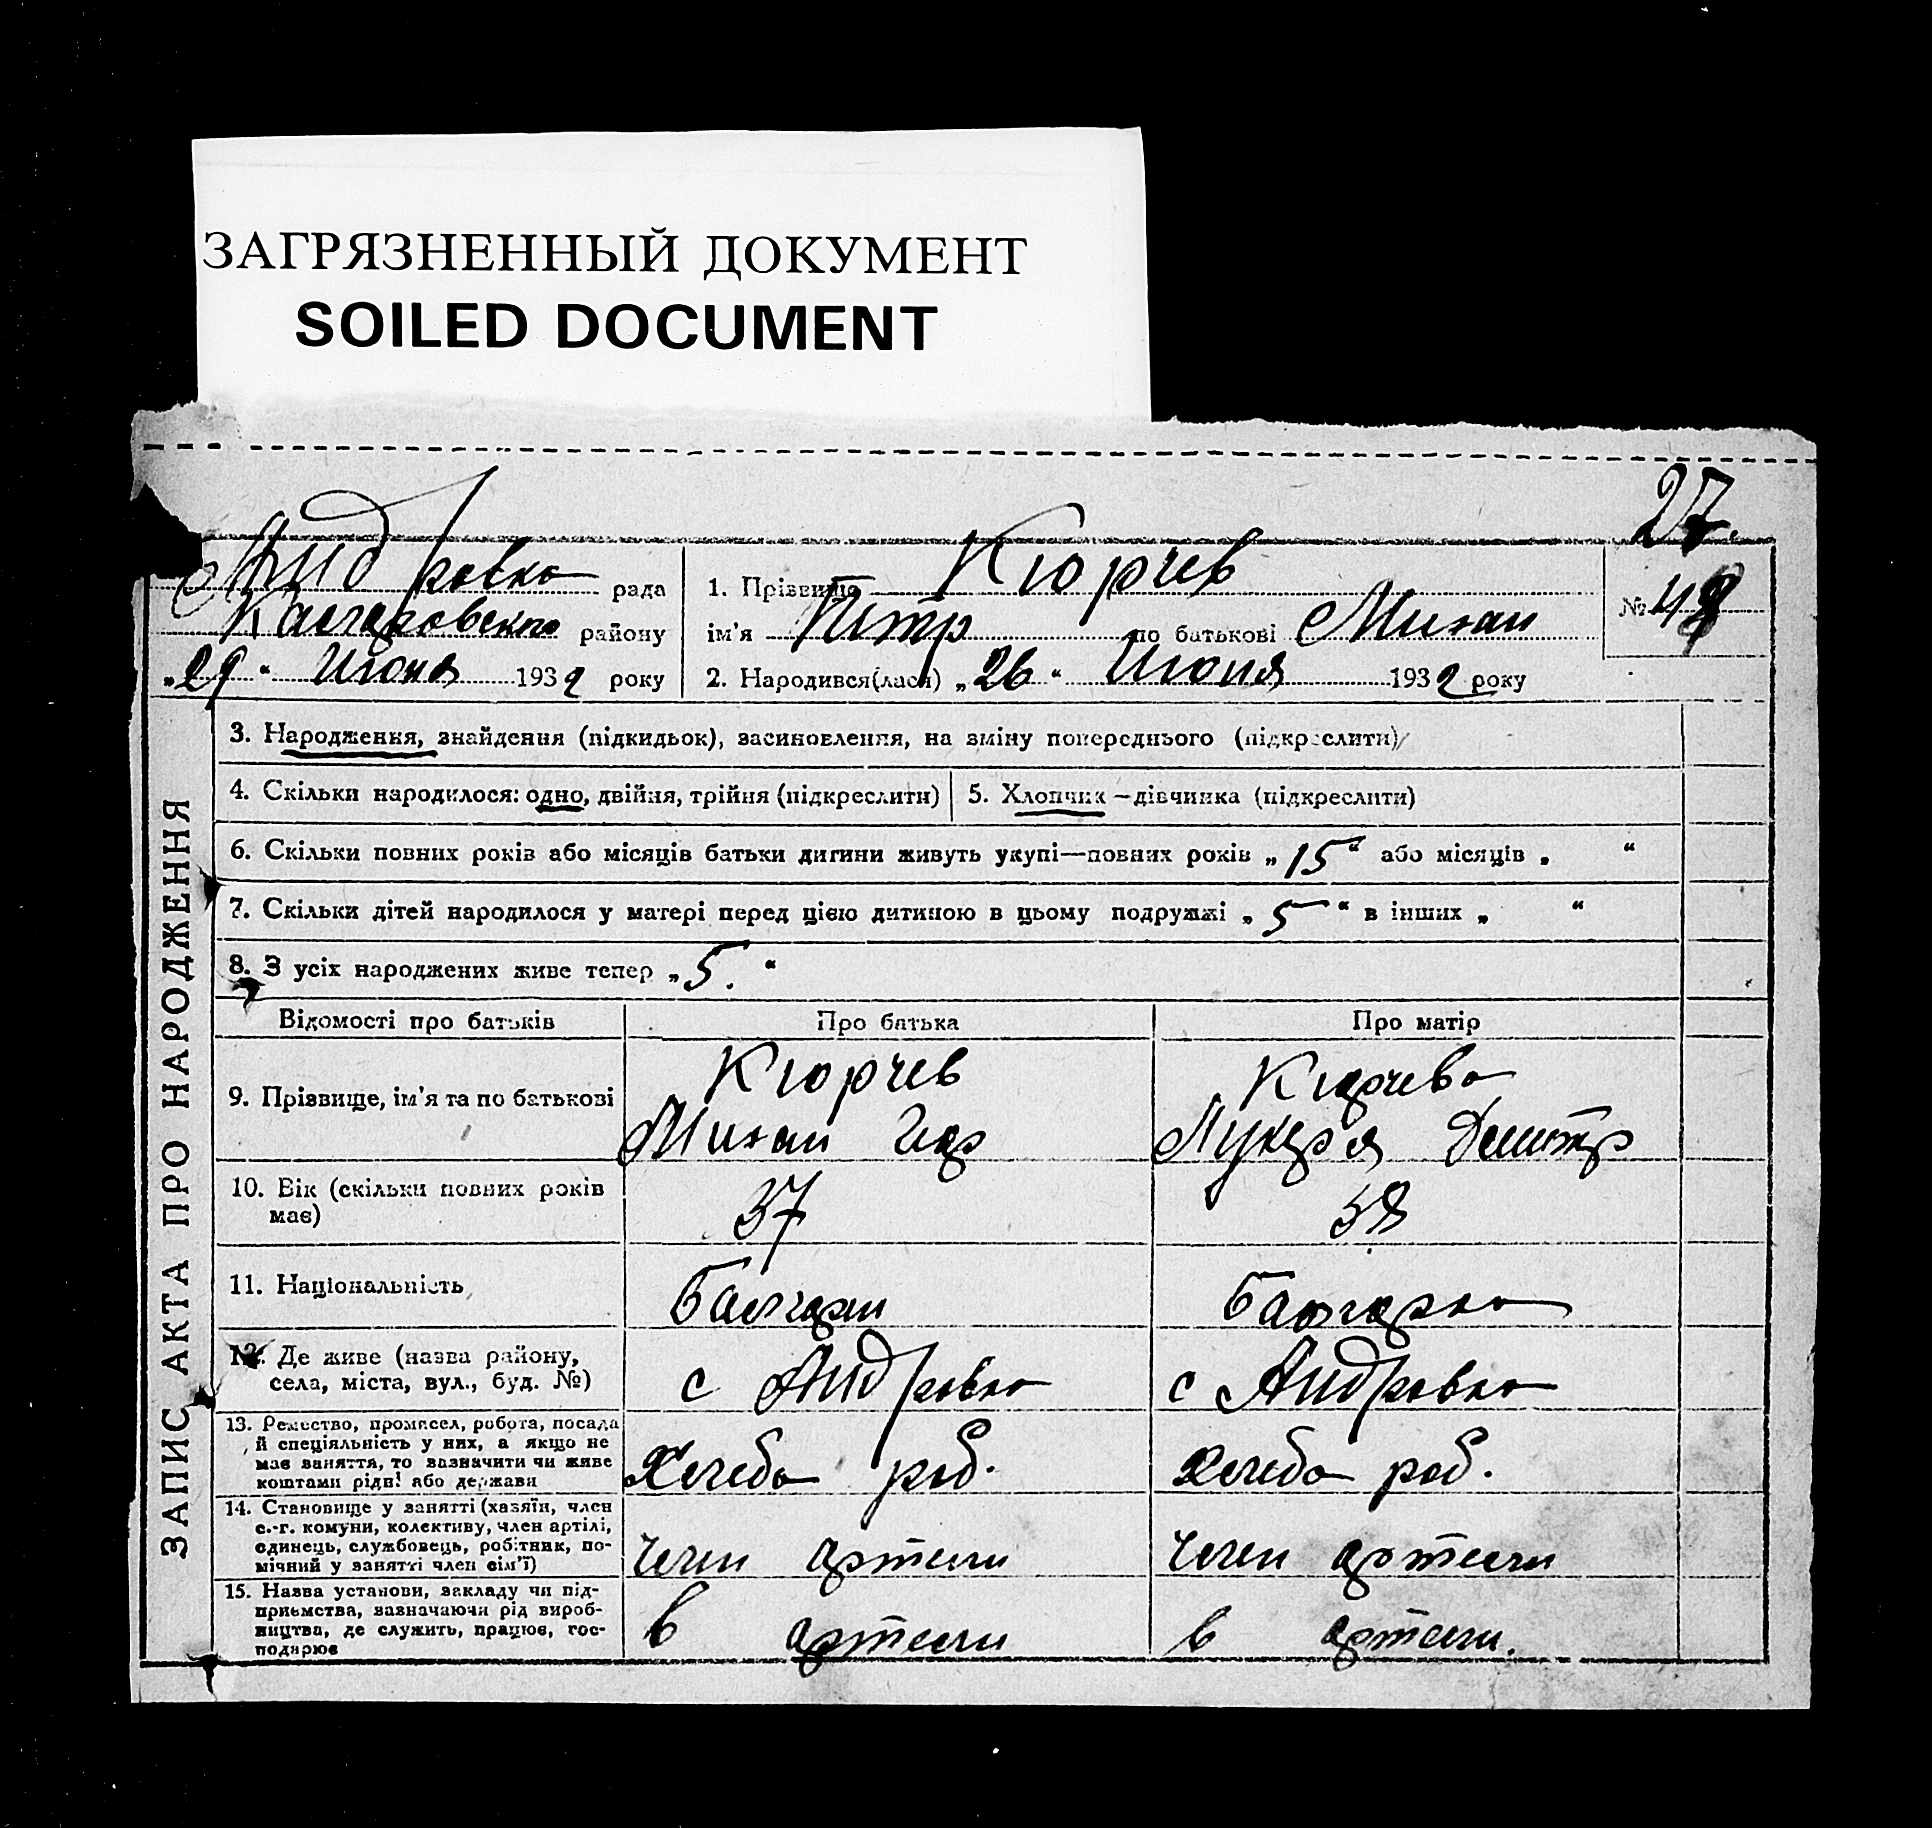 ЗАГРЯЗНЕННЫЙ ДОКУМЕНТ
SOILED DOCUMENT
27.
Андровка рада
району
„29“ Июня 1932 року
1. Прізвище Кюрчев
ім'я Петр по батькові Михаи
2. Народився(лася) „26“ Июня 1932 року
№ 48
ЗАПИС АКТА ПРО НАРОДЖЕННЯ
3. Народження, знайдення (підкидьок), засиновлення, на зміну попереднього (підкреслити)
4. Скільки народилося: одно, двійня, трійня (підкреслити)
5. Хлопчик – дівчинка (підкреслити)
6. Скільки повних років або місяців батьки дитини живуть укупі—повних років „15“ або місяців „ “
7. Скільки дітей народилося у матері перед цією дитиною в цьому подружжі „5“ в інших „ “
8. З усіх народжених живе тепер „5.“
Відомості про батьків Про батька Про матір
9. Прізвище, ім'я та по батькові
Кюрчев
Михаи
Кюрчева
Лукеря Демитр
10. Вік (скільки повних років
має)
37
38
11. Національність
Балгари
Балгарка
12. Де живе (назва району,
села, міста, вул., буд. №)
с Андровка
с Андровка
13. Ремество, промисел, робота, посада
й спеціяльність у них, а якщо не
має заняття, то зазначити чи живе
коштами рідні або держави
Хлеба роб.
Хлеба роб.
14. Становище у занятті (хазяїн, член
с.-г. комуни, колективу, член артілі,
одинець, службовець, робітник, по-
мічний у занятті член сім'ї)
член артели
член артели
15. Назва установи, закладу чи під-
приємства, зазначаючи рід вироб-
ництва, де служить, працює, гос-
подарює
в артели
в артели.